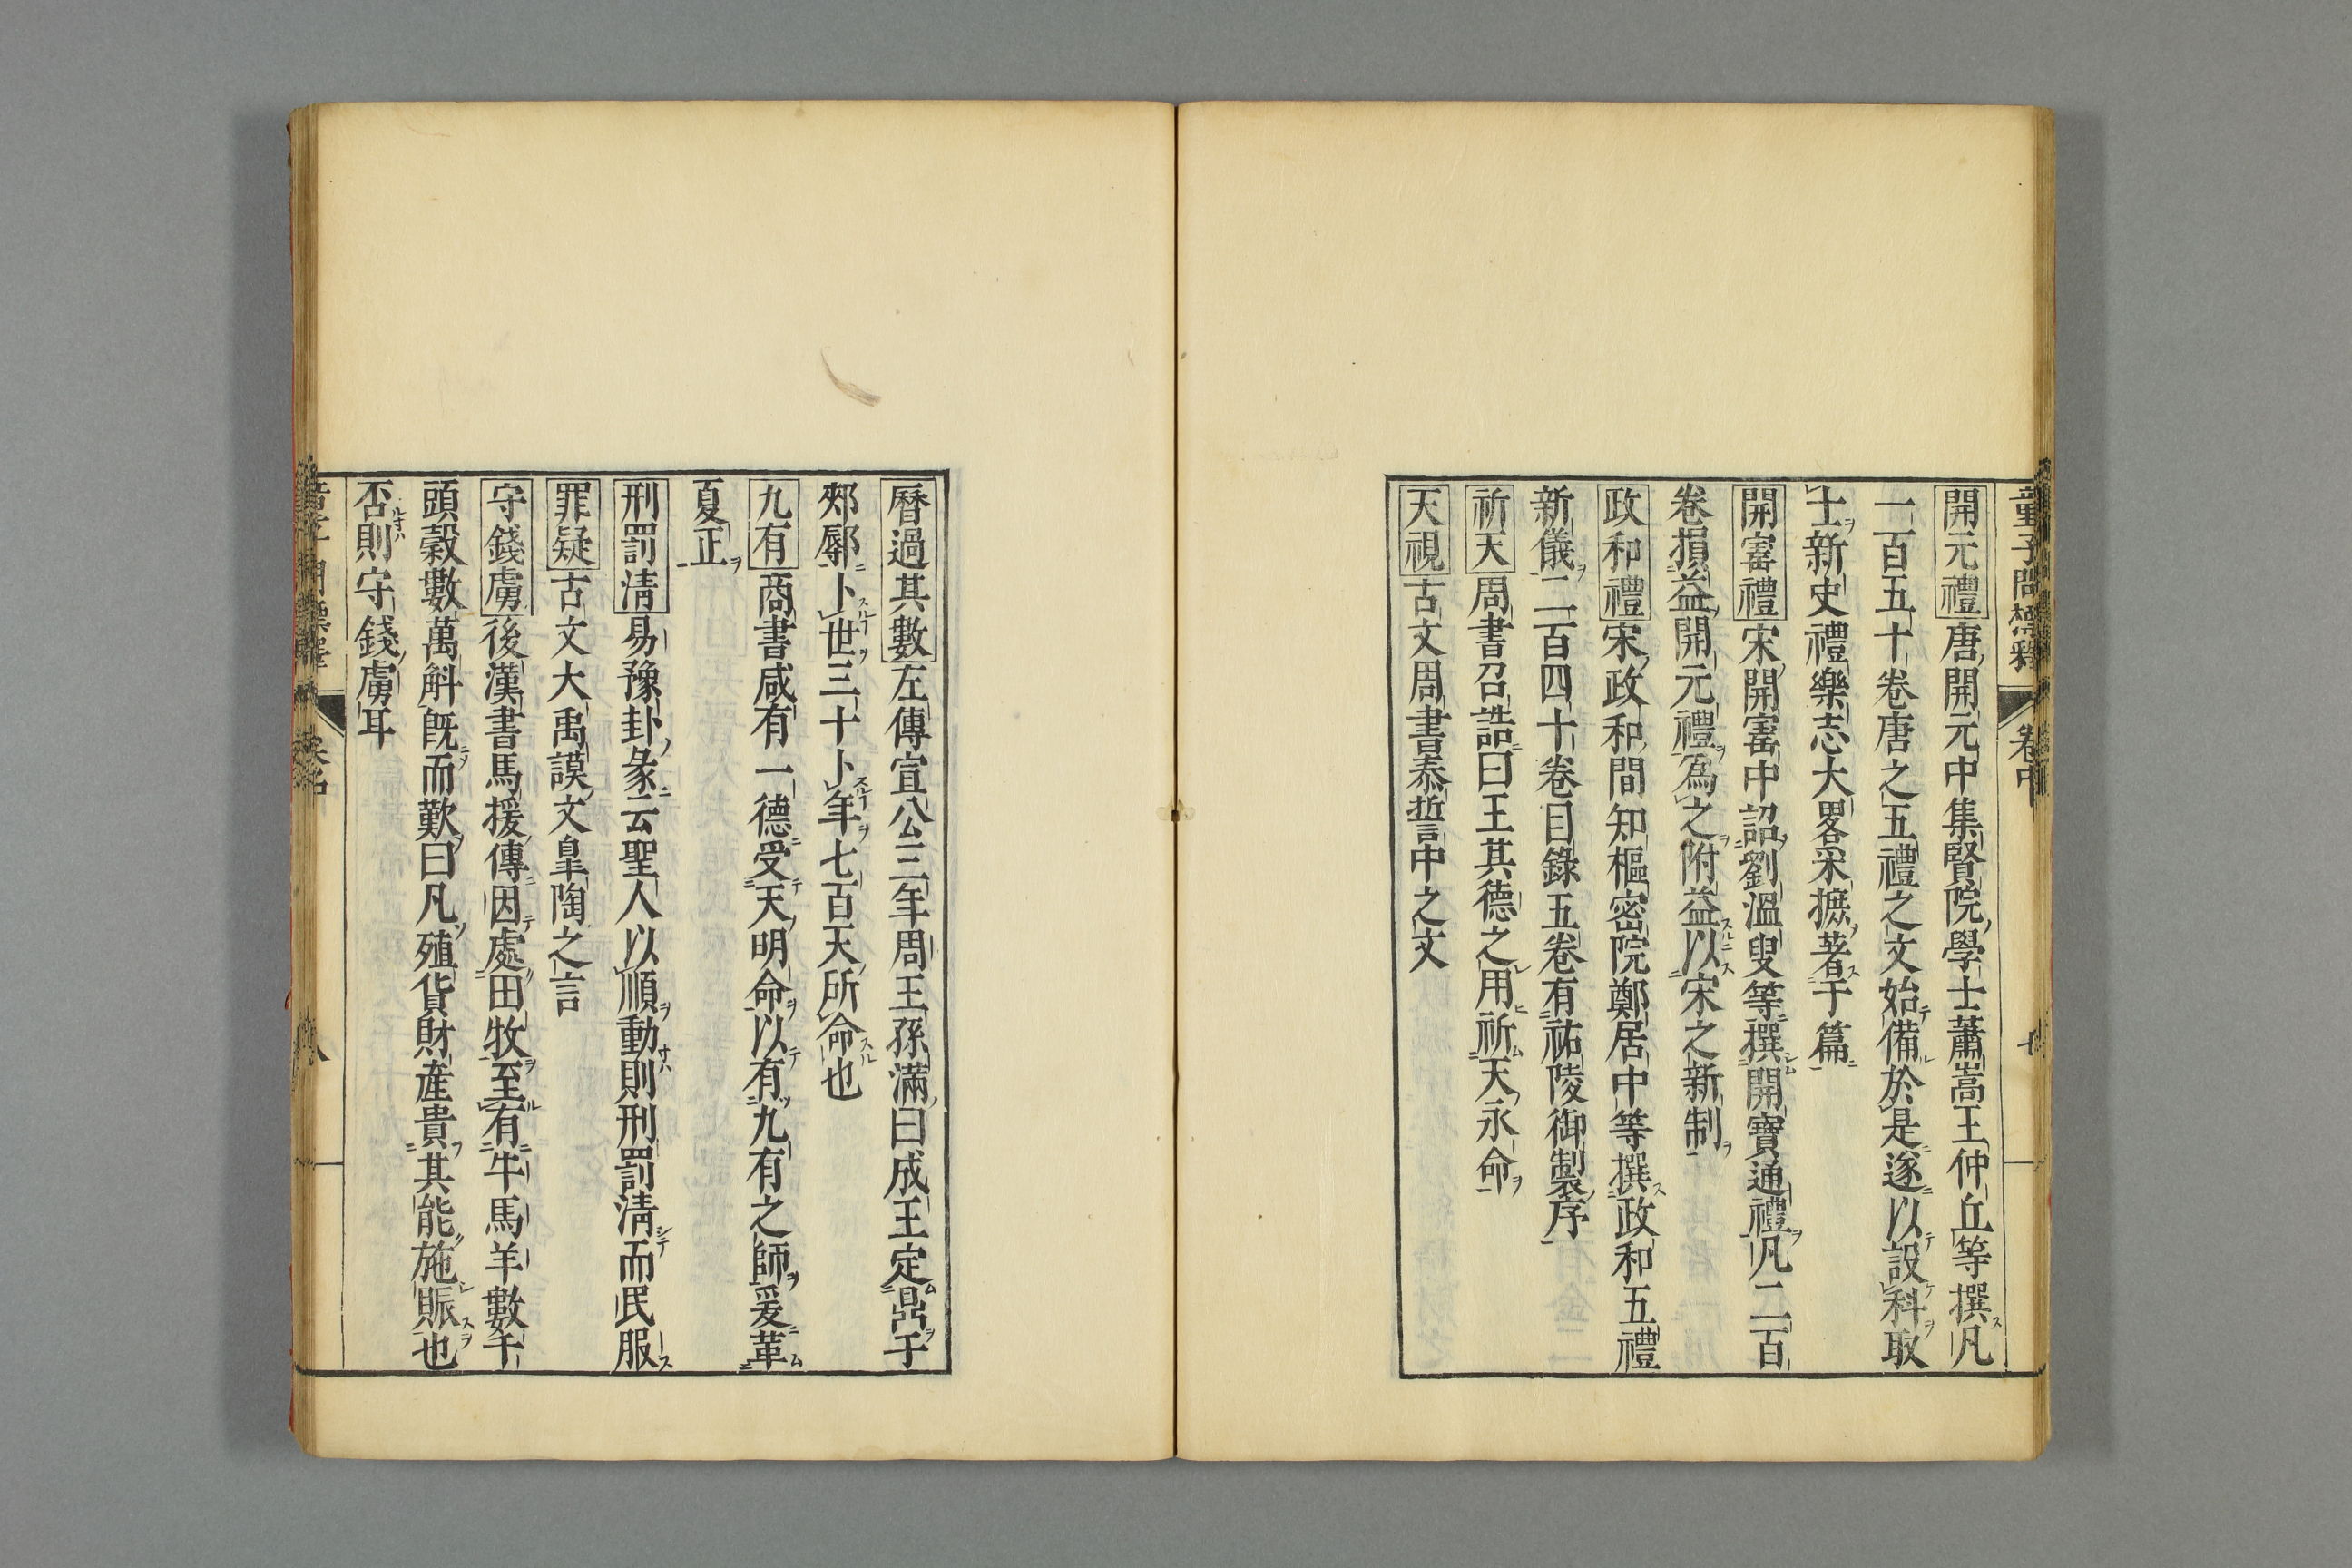 童子問標釋 卷中
開元禮唐開元中集賢院學士蕭嵩王仲丘等撰凡
一百五十卷唐之五禮之文始備於是遂以設科取
士新史禮樂志大畧采摭著于篇
開寳禮宋開寳中詔劉溫叟等撰開寶通禮凡二百
卷損益開元禮為之附益以宋之新制
政和禮宋政和間知樞密院鄭居中等撰政和五禮
新儀二百四十卷目錄五卷有祐陵御製序
祈天周書召誥曰王其德之用祈天永命
天視古文周書泰誓中之文
曆過其數左傳宣公三年周王孫滿曰成王定鼎于
郟鄏卜世三十卜年七百天所命也
九有商書咸有一德受天明命以有九有之師爰革
夏正
刑罰淸易豫卦彖云聖人以順動則刑罰淸而民服
罪疑古文大禹謨文皐陶之言
守錢虜後漢書馬援傳因處田牧至有牛馬羊數千
頭穀數萬斛旣而歎曰凡殖貨財產貴其能施賑也
否則守錢虜耳
八